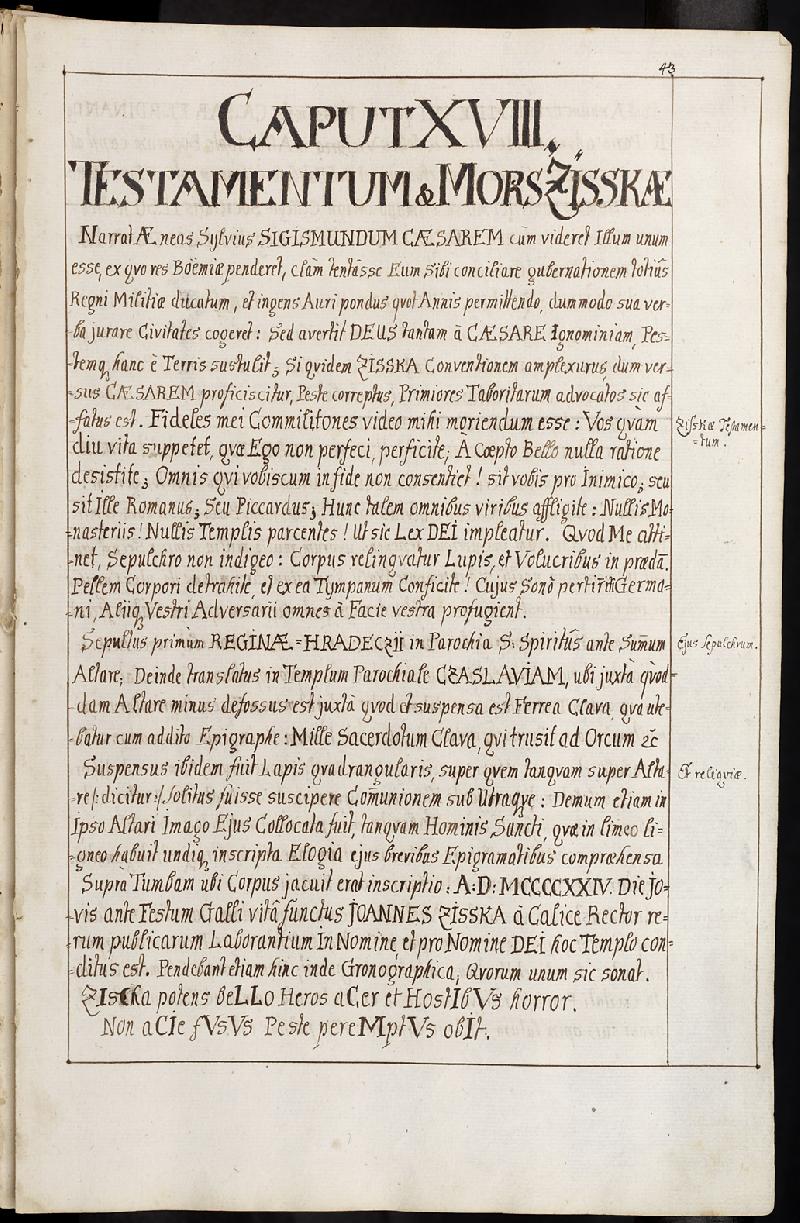 43
CAPUT XVIII.
TESTAMENTUM & MORS ŽISSKÆ
Narrat Æneas Sylvius SIGISMUNDUM CÆSAREM cum videret Illum unum
esse, ex qvo res Boëmiæ penderet, clàm tentâsse Eum sibi conciliare gubernationem totiûs
Regni Militiæ ducatum, et ingens Auri pondus qvot Annis permittendo, dummodo sua ver=
=ba jurare Civitates cogeret: Sed avertit DEUS tantam à CÆSARE Ignominiam, Pes=
=temq, hanc è Terris sustulit; Siqvidem ZISSKA Conventionem amplexurus, dum ver=
=sus CÆSAREM proficiscitur, Peste correptus, Primiores Taboritarum advocatos sic af=
=fatus est. Fideles mei Commilitones video mihi moriendum esse: Vos qvàm
diu vita suppetet, qvæ Ego non perfeci, perficite; À Cœpto Bello nulla ratione
desistite; Omnis qvi vobiscum in fide non consentiet! sit vobis pro Inimico; seu
sit Ille Romanus; Seu Piccardus; Hunc talem omnibus viribus affligite: Nullis Mo=
=nasteriis! Nullis Templis parcentes! Ut sic Lex DEI impleatur. Qvod Me atti=
=net, Sepulchro non indigeo: Corpus relinqvatur Lupis, et Volucribus in prædã.
Pellem Corpori detrahite, et ex ea Tympanum Conficite! Cujus Sonô Germa=
=ni, Aliiq, Vestri Adversarii omnes à Facie vestra profugient.
Sepultus primùm REGINÆ=HRADECZII in Parochia S: Spiritûs ante Sum̄um
Altare; Deinde translatus in Templum Parochiale CZASLAVIAM, ubi juxtà qvod=
=dam Altare minus defossus est juxtà qvod et suspensa est Ferrea Clava, qvâ ute=
=batur cum addito Epigraphe: Mille Sacerdotum Clava, qvi trusit ad Orcum &c
Suspensus ibidem fuit Lapis qvadrangularis, super qvem tanqvam super Alta=
=re /: dicitur :/ solitus fuisse suscipere Com̄unionem sub Utraqve: Demum etiam in
Ipso Altari Imago Ejus Collocata fuit, tanqvam Hominis Sancti, qvæ in limbo li=
=gneo habuit undiq, inscripta Elogia ejus brevibus Epigramatibus compræhensa
Suprà Tumbam ubi Corpus jacuit erat inscriptio: A: D: MCCCCXXIV. Die Jo=
=vis ante Festum Galli vitâ functus JOANNES ZISSKA à Calice Rector re=
=rum publicarum Laborantium In Nomine, et pro Nomine DEI hoc Templo con=
=ditus est. Pendebant etiam hinc inde Gronographica, Qvorum unum sic sonat.
ZISCka potens beLLo Heros aCer et HostIbVs horror.
Non aCIe fVsVs Peste pereMptVs obIt.
Zisskæ Testamen=
=tum.
Ejus Sepulchrum.
Et reliqviæ.